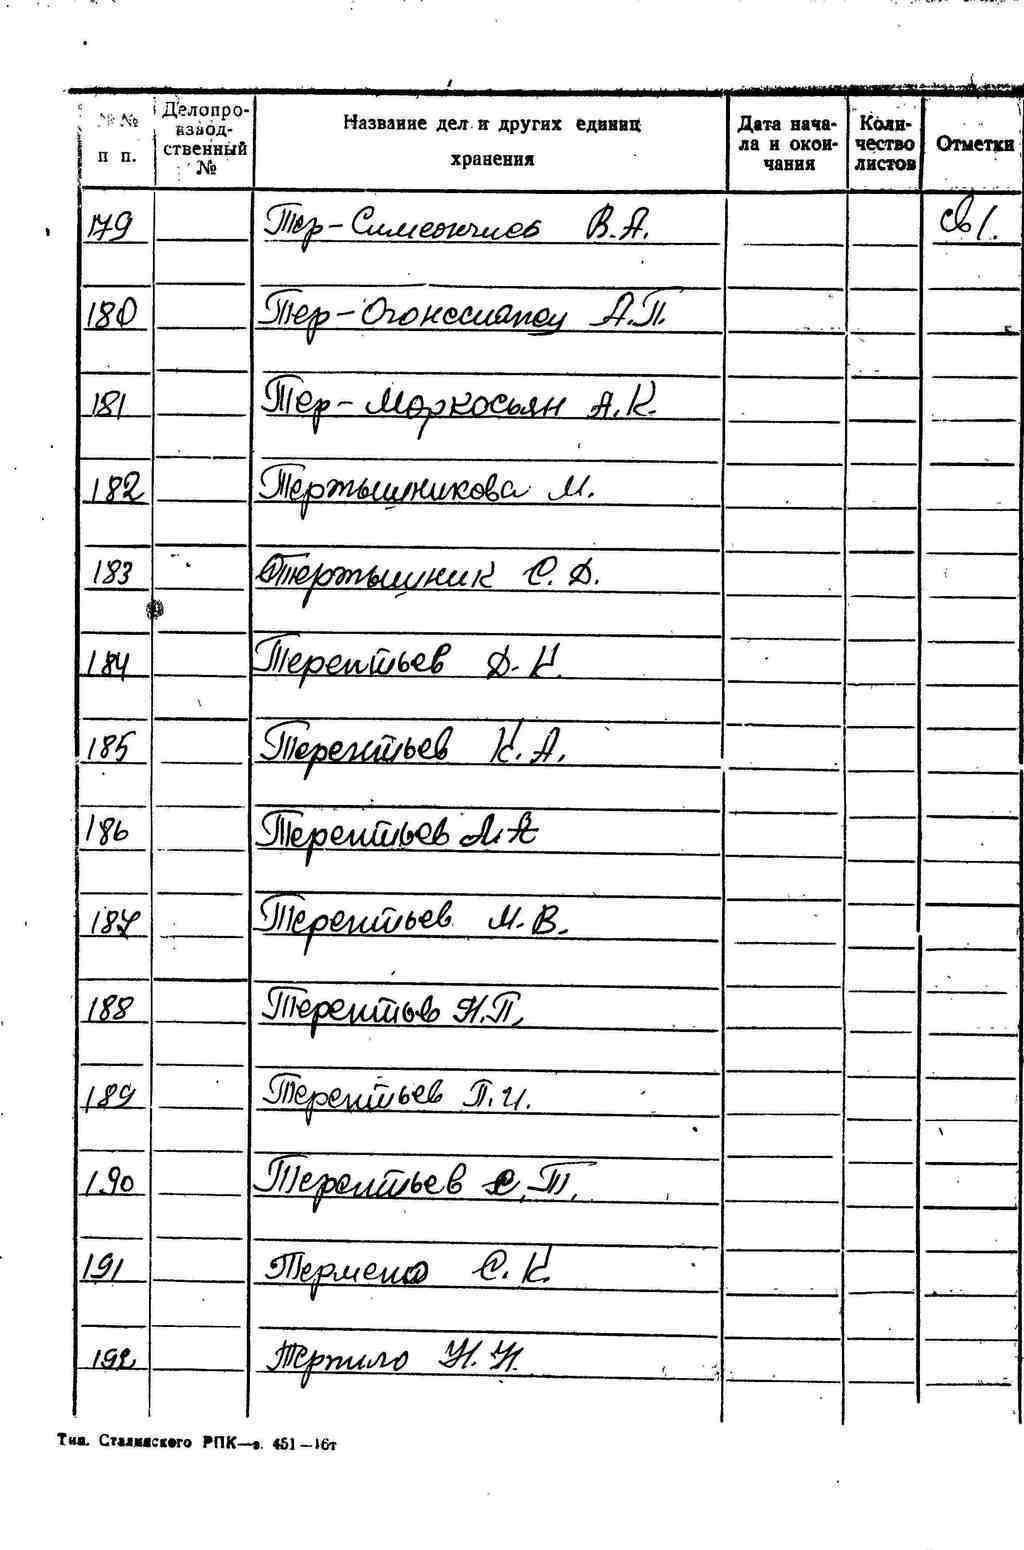 № № п п.
Делопроизводственный №
Название дел и других единиц хранения
Дата начала и окончания
Количество листов
Отметки
179 Тер-Симеончиев В.А. св 1.
180 Тер-Огонесианец А.П.
181 Тер-Маркосьян А.К.
182 Тертышникова М.
183 Тертышник С.Д.
184 Терентьев Д.К.
185 Терентьев К.А.
186 Терентьев А.А
187 Терентьев М.В.
188 Терентьев Н.П.
189 Терентьев П.И.
190 Терентьев С.Т.
191 Термено С.К.
192 Терпило Н.Н.
Тип. Сталинского РПК—з. 451—16т